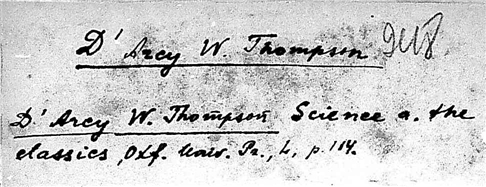 D'Arcy W. Thompson
D'Arcy W. Thompson Science a. the
classics, Oxf. Univ. Pr., L, p. 114.